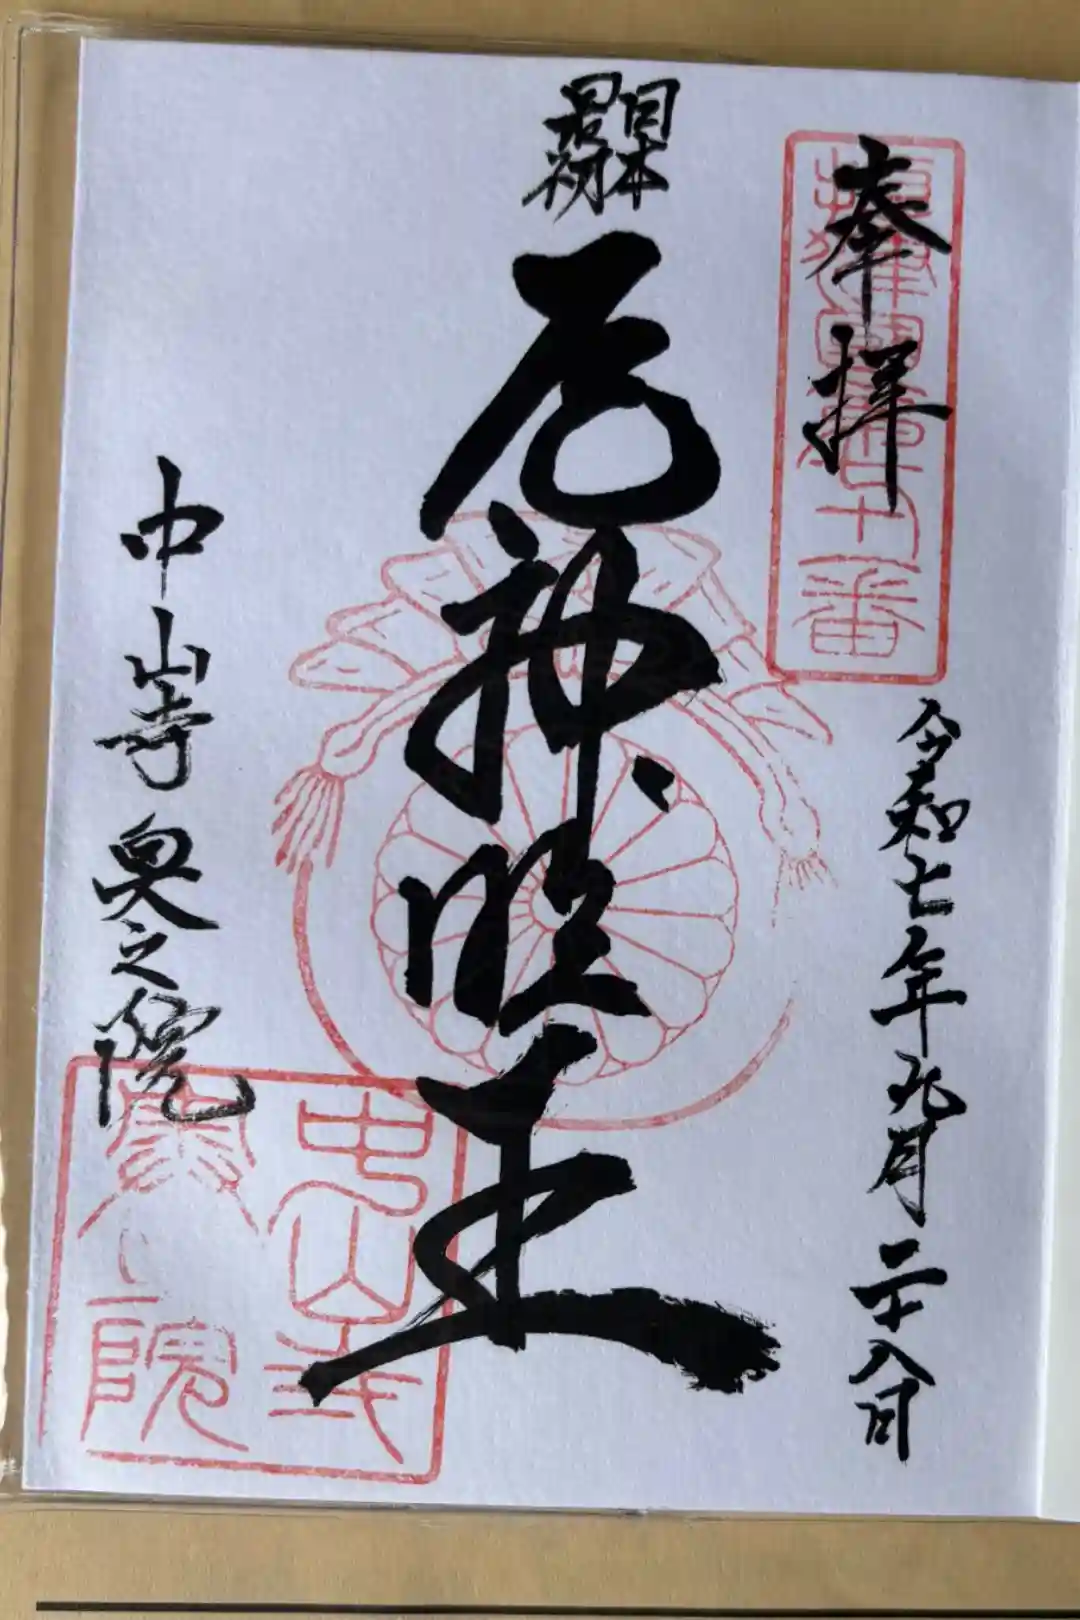 奉拝
令和七年九月二十八日
日本
最初
厄神明王
中山寺奥之院
中山寺
奥之院